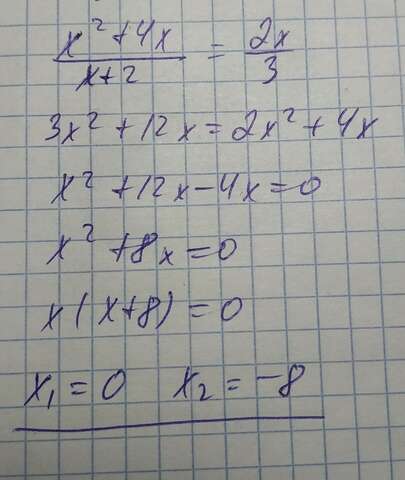 x² + 4x / x+2 = 2x / 3
3x² + 12x = 2x² + 4x
x² + 12x - 4x = 0
x² + 8x = 0
x(x+8) = 0
x₁ = 0 x₂ = -8